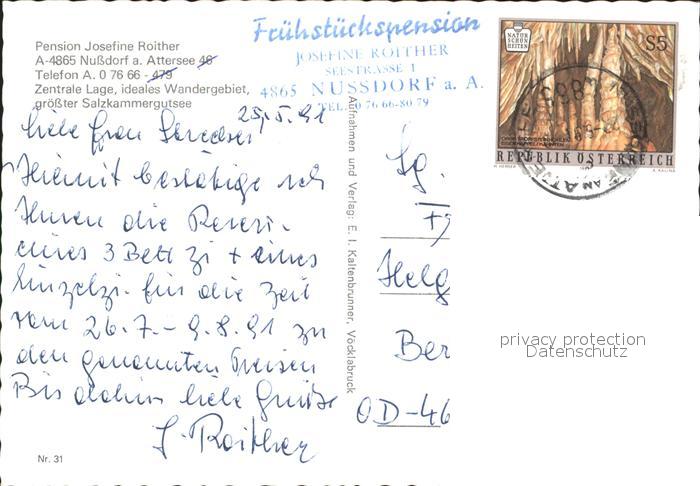 Pension Josefine Roither
A-4865 Nußdorf a. Attersee 46
Telefon A. 0 76 66 - 479
Zentrale Lage, ideales Wandergebiet,
größter Salzkammergutsee
Frühstückspension
JOSEFINE ROITHER
SEESTRASSE 1
4865 NUSSDORF a. A.
TEL. 0 76 66-80 79
25. 5. 91
liebe Frau
Hiermit bestätige ich
Ihnen die Reservi.
eines 3 Bett Zi + eines
Einzelzi. für die Zeit
vom 26.7. - 9.8.91 zu
den genannten Preisen
Bis dahin liebe Grüße
J. Roither
Nr. 31
Aufnahmen und Verlag: E. I. Kaltenbrunner, Vöcklabruck
Helg
Ber
OD-46
NATUR
SCHÖN
HEITEN
S5
REPUBLIK ÖSTERREICH
privacy protection
Datenschutz